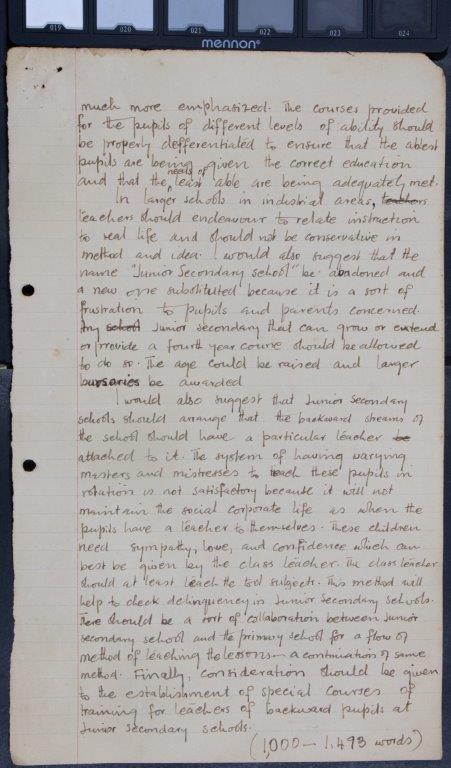 019 020 021 022 023 024
mennon®
much more emphasized. The courses provided
for the pupils of different levels of ability should
be properly defferentiated to ensure that the ablest
pupils are being given the correct education
and that the needs of least able are being adequately met.
In larger schools in industrial areas, teachers
teachers should endeavour to relate instruction
to real life and should not be conservative in
method and idea. I would also suggest that the
name "Junior Secondary School" be abandoned and
a new one substituted because it is a sort of
frustration to pupils and parents concerned.
Any school Junior secondary that can grow or extend
or provide a fourth year course should be allowed
to do so. The age could be raised and larger
bursaries be awarded
I would also suggest that Junior Secondary
schools should arrange that the backward streams of
the school should have a particular teacher be
attached to it. The system of having varying
masters and mistresses to teach these pupils in
rotation is not satisfactory because it will not
maintain the social corporate life as when the
pupils have a teacher to themselves. These children
need sympathy, love, and confidence which can
best be given by the class teacher. The class teacher
should at least teach the tool subjects. This method will
help to check delinquency in Junior Secondary schools.
There should be a sort of collaboration between Junior
secondary school and the primary school for a flow of
method of teaching the lessons — a continuation of same
method. Finally, consideration should be given
to the establishment of special courses of
training for teachers of backward pupils at
Junior secondary schools.
(1,000 — 1,493 words)